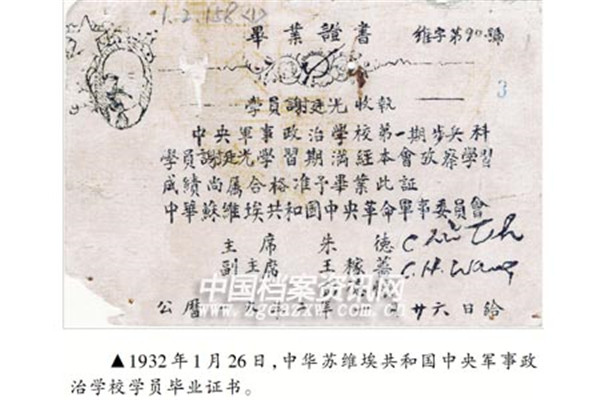 1.2.158<1>
畢業證書
維字第90號
3
學員謝廷光收執
中央軍事政治學校第一期步兵科
學員謝廷光學習期滿經本會攷察學習
成績尚屬合格准予畢業此証
中華蘇維埃共和国中央革命軍事委員會
主席 朱德
副主席 王稼薔
C. H. Wang
中国档案资讯网
www.zgdazxw.com.cn
公曆 廿六日給
▲1932年1月26日,中华苏维埃共和国中央军事政
治学校学员毕业证书。